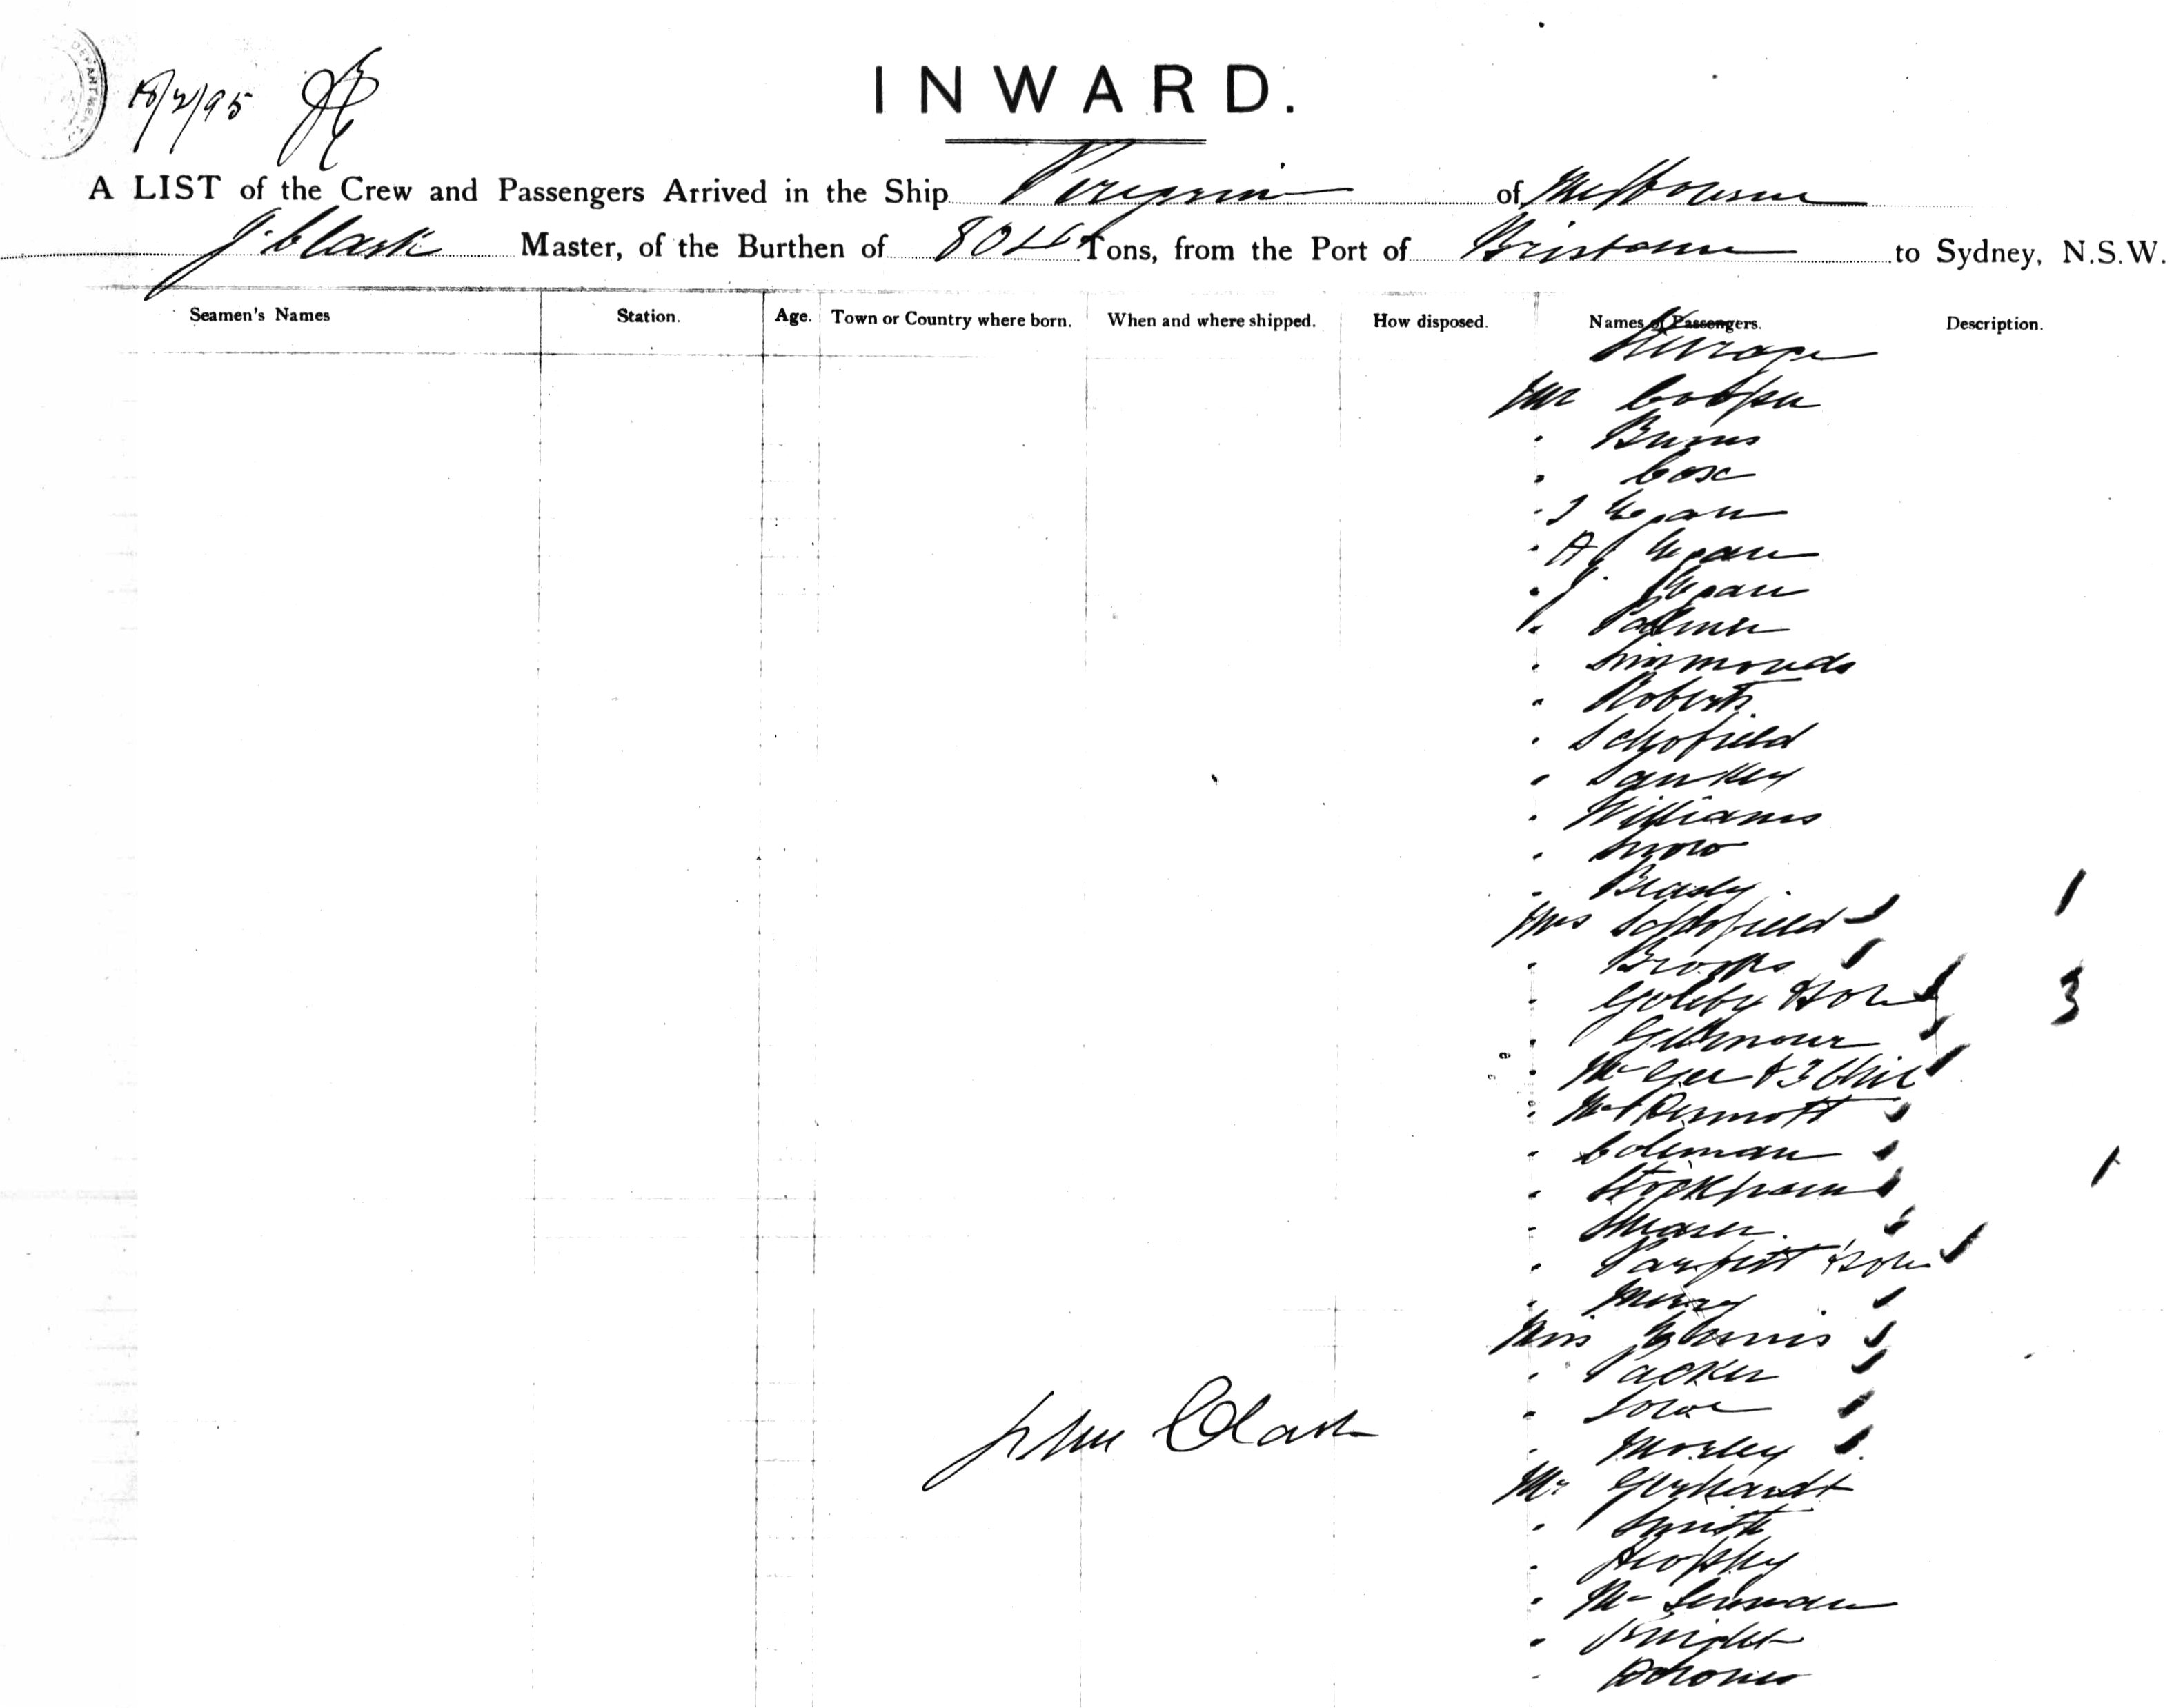 18/2/95
INWARD.
A LIST of the Crew and Passengers Arrived in the Ship Peregrine of Melbourne
J. Clark Master, of the Burthen of Tons, from the Port of Brisbane to Sydney, N.S.W.
Seamen's Names Station. Age. Town or Country where born. When and where shipped. How disposed. Names of Passengers. Description.
Steerage
Mr Cooper
" Burns
" Cox
" J Egan
" A J Egan
" J. Egan
" Palmer
" Simmonds
" Roberts
" Schofield
" Sankey
" Williams
" Snow
" Brady
Mrs Schofield 1
" Brooks
" Golsby & son 3
" Gilmour
" McGee & 3 Chil
" McDermott
" Coleman
" Stockham 1
" Shearer
" Parfitt & son
" Merry
Miss
" Packer
" Lowe
" Morley
John Clark
Mr Gerhardt
" Smith
" Brophy
" McLennan
" Knight
"